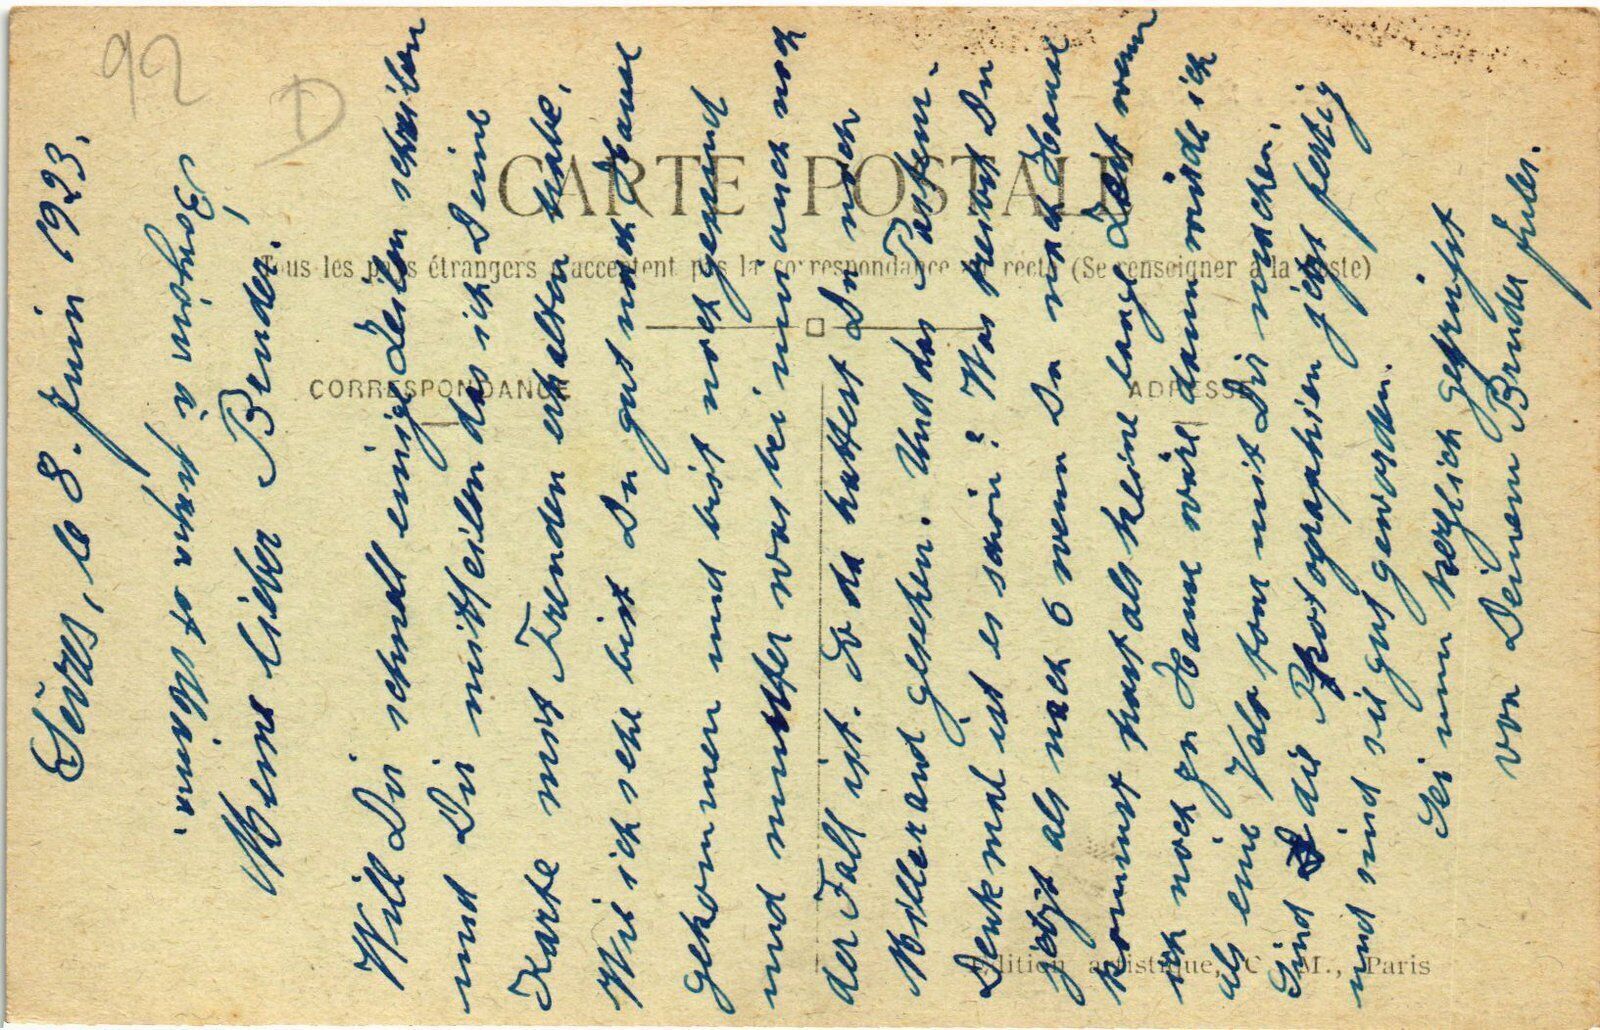 92
D
CARTE POSTALE
Tous les pays étrangers n'acceptent pas la correspondance au recto (Se renseigner à la Poste)
CORRESPONDANCE
ADRESSE
Edition artistique, C. M., Paris
Sèvres, le 8. Juin 1923.
Meine lieber Bruder.
Will Dir schnell einige Zeilen schreiben
und Dir mitteilen das ich Deine
Karte mit Freuden erhalten habe.
Wie ich sehe bist Du gut nach Hause
gekommen und bist noch gesund
und munter was bei mir auch noch
der Fall ist. So da hattest Du noch
Millerand gesehen. Und das Pasteur-
Denkmal ist es schön? Was treibst Du
jetzt als nach 6 wenn Du nach Hause
kommst hast als keine lange Zeit wenn
ich noch zu Hause wäre dann würde ich
als eine Velo tour mit Dir machen.
Sind die Photographien jetzt fertig
und sind sie gut geworden.
Sei nun herzlich gegrüsst
von Deinem Bruder Jules.